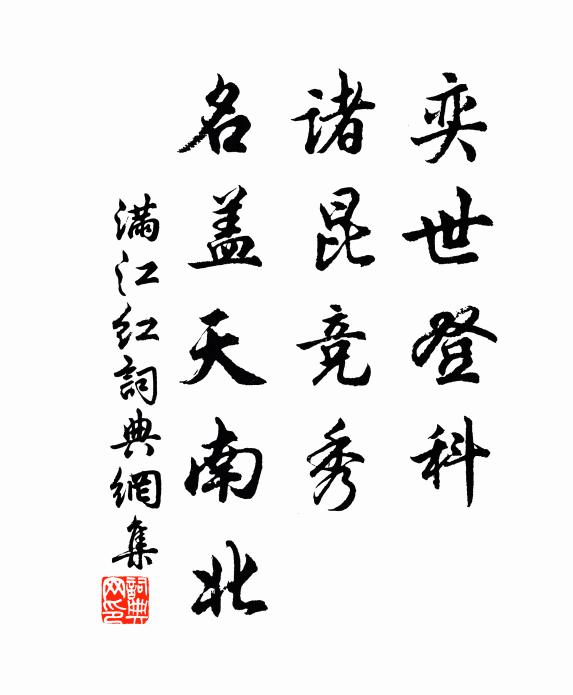 奕世登科
诸昆竞秀
名盖天南北
满江红詞典網集
詞典网印